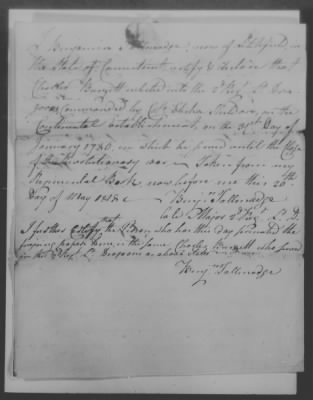 I Benjamin Tallmadge, now of Litchfield, in
the State of Connecticut, certify & declare that
Charles Burnett enlisted into the 2d Regt. Lt. Dra-
goons commanded by Colo. Sheldon, on the
Continental establishment, on the day of
January 1780, in which he served until the Close
of the Revolutionary war. Taken from my
Regimental Book now before me this 20th
Day of May 1818.
Benjn. Tallmadge
late Major 2d Regt. L. D.
I further certify that the Person who has this day presented the
foregoing paper is the same Charles Burnett who served
in the 2d Regt. Lt. Dragoons as above
Benjn. Tallmadge